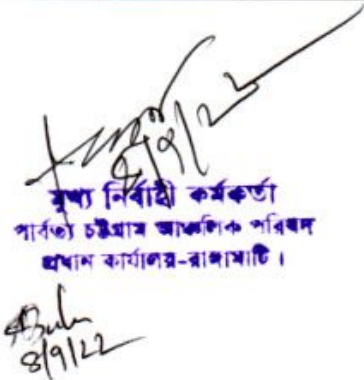 ৪/৯/২২
মুখ্য নির্বাহী কর্মকর্তা
পার্বত্য চট্টগ্রাম আঞ্চলিক পরিষদ
প্রধান কার্যালয়-রাঙ্গামাটি।
8/9/22